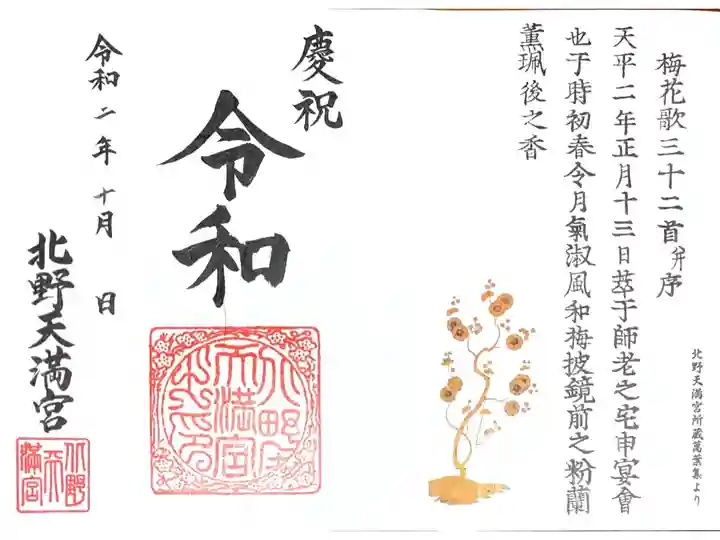 梅花歌三十二首并序
天平二年正月十三日萃于師老之宅申宴會
也于時初春令月氣淑風和梅披鏡前之粉蘭
薫珮後之香
北野天満宮所蔵萬葉集より
慶祝
令和
北野天満宮之印
令和二年十月 日
北野天満宮
北野天満宮